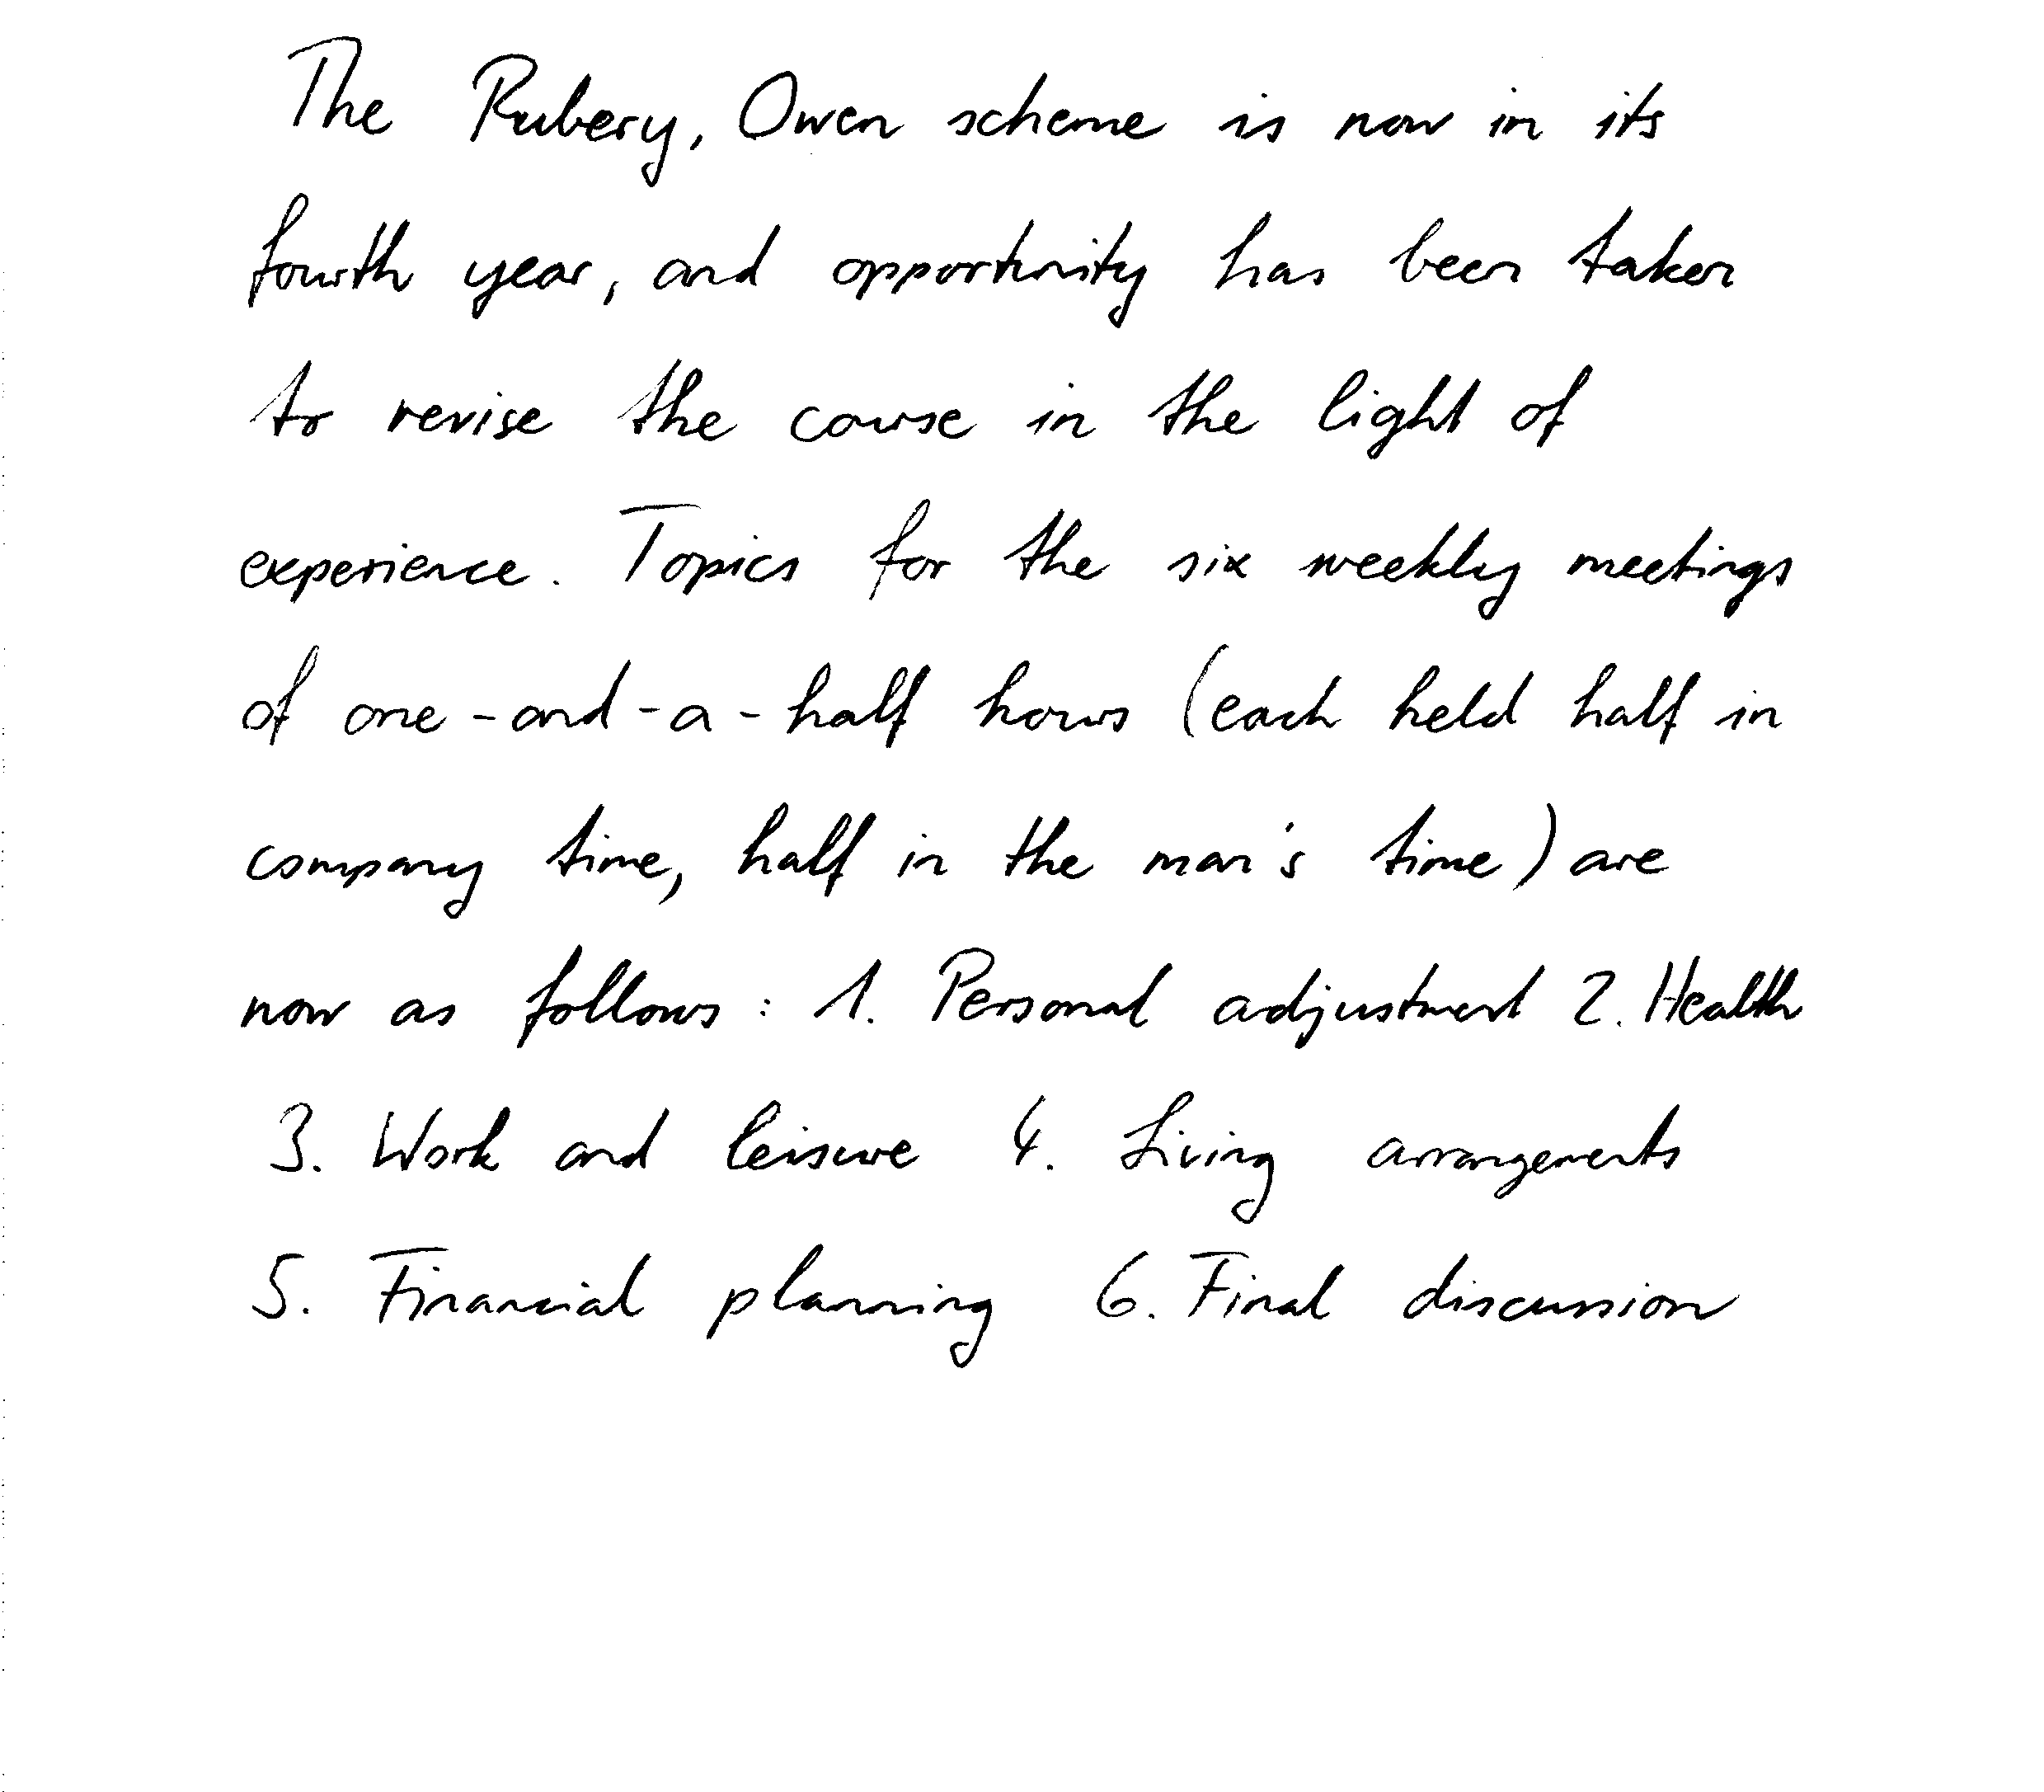 The Rubery, Owen scheme is now in its
fourth year, and opportunity has been taken
to revise the course in the light of
experience. Topics for the six weekly meetings
of one-and-a-half hours (each held half in
company time, half in the man's time) are
now as follows: 1. Personal adjustment 2. Health
3. Work and leisure 4. Living arrangements
5. Financial planning 6. Final discussion